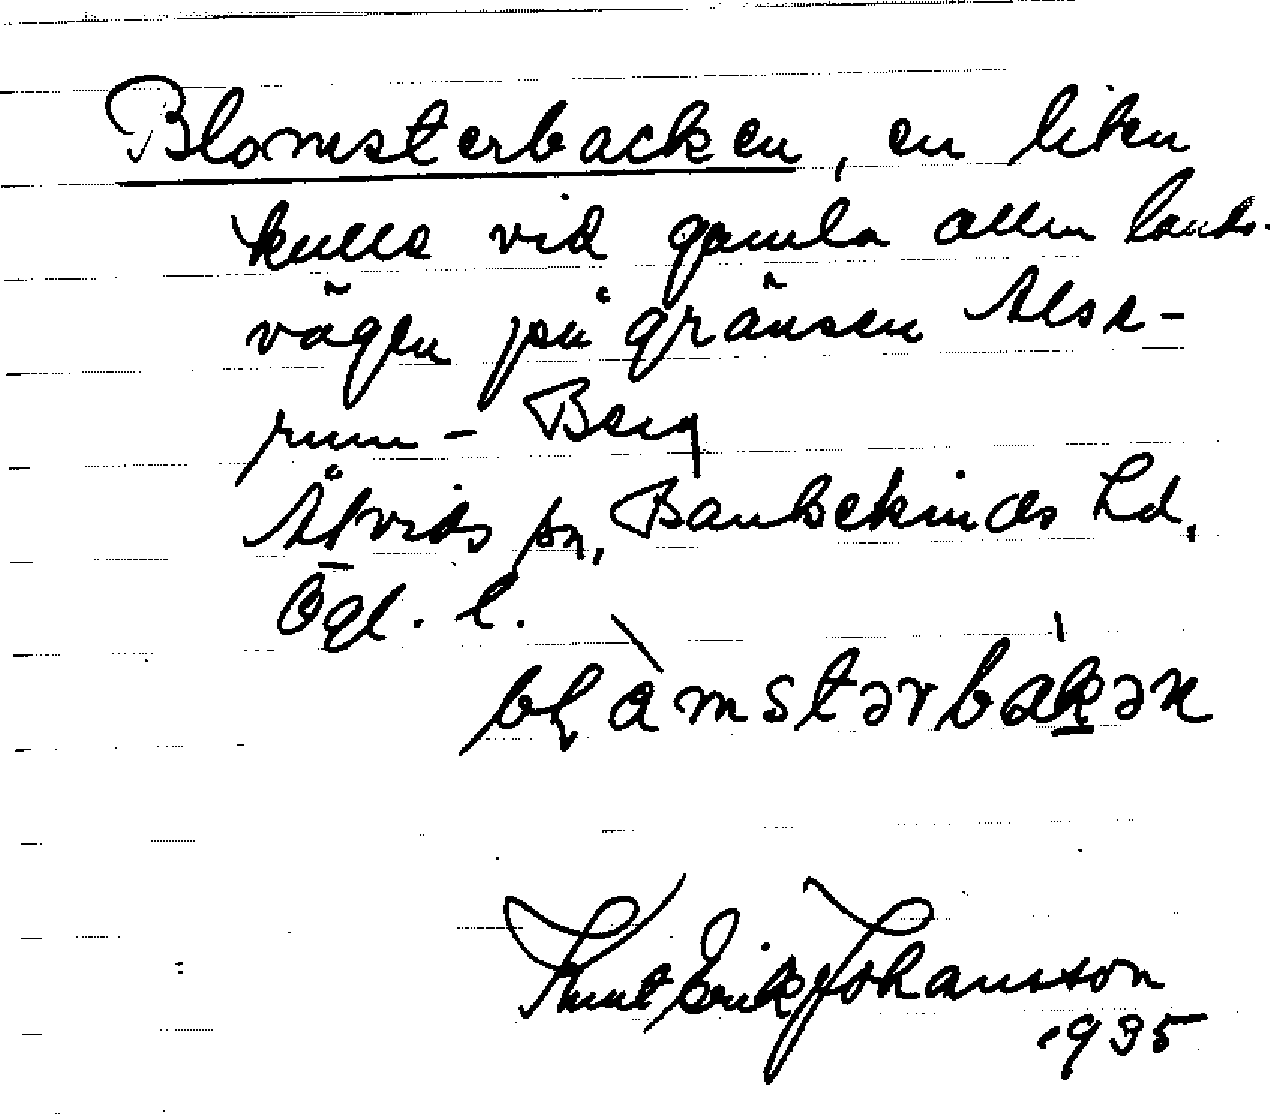 Blomsterbacken, en liten
kulle vid gamla allm lands-
vägen på gränsen Alse-
rum - Berg
Åtvids sn, Bankekinds hd,
Ögl. l.
Knut Erik Johansson
1935